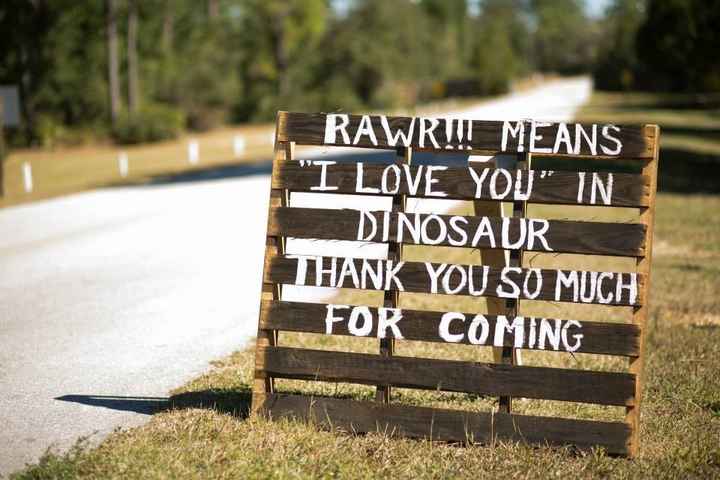 RAWR!!! MEANS
"I LOVE YOU" IN
DINOSAUR
THANK YOU SO MUCH
FOR COMING